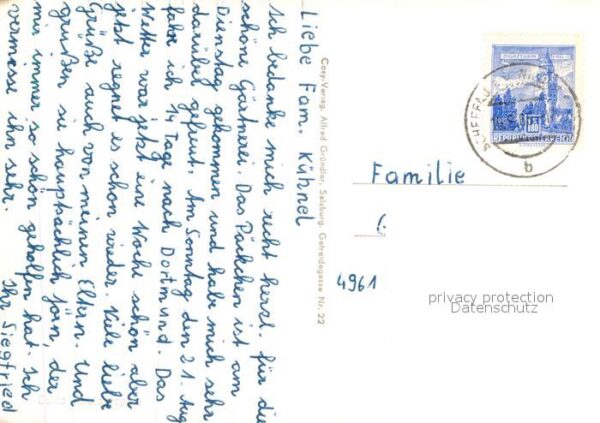 Liebe Fam. Kühnel
Ich bedanke mich recht herzl. für die
schöne Gärtnerei. Das Päckchen ist am
Dienstag gekommen und habe mich sehr
darüber gefreut. Am Sonntag den 21. Aug
fahre ich 14 Tage nach Dortmund. Das
Wetter war jetzt eine Woche schön aber
jetzt regnet es schon wieder. Viele liebe
Grüße auch von meinen Eltern. Und
grüßen sie hauptsächlich Jörn, der
mir immer so schön geholfen hat. Ich
vermisse ihn sehr.
Ihr Siegfried
Cosy-Verlag, Alfred Gründler, Salzburg, Getreidegasse Nr. 22
SCHEFFAU
b
REPUBLIK ÖSTERREICH
Familie
4961
privacy protection
Datenschutz